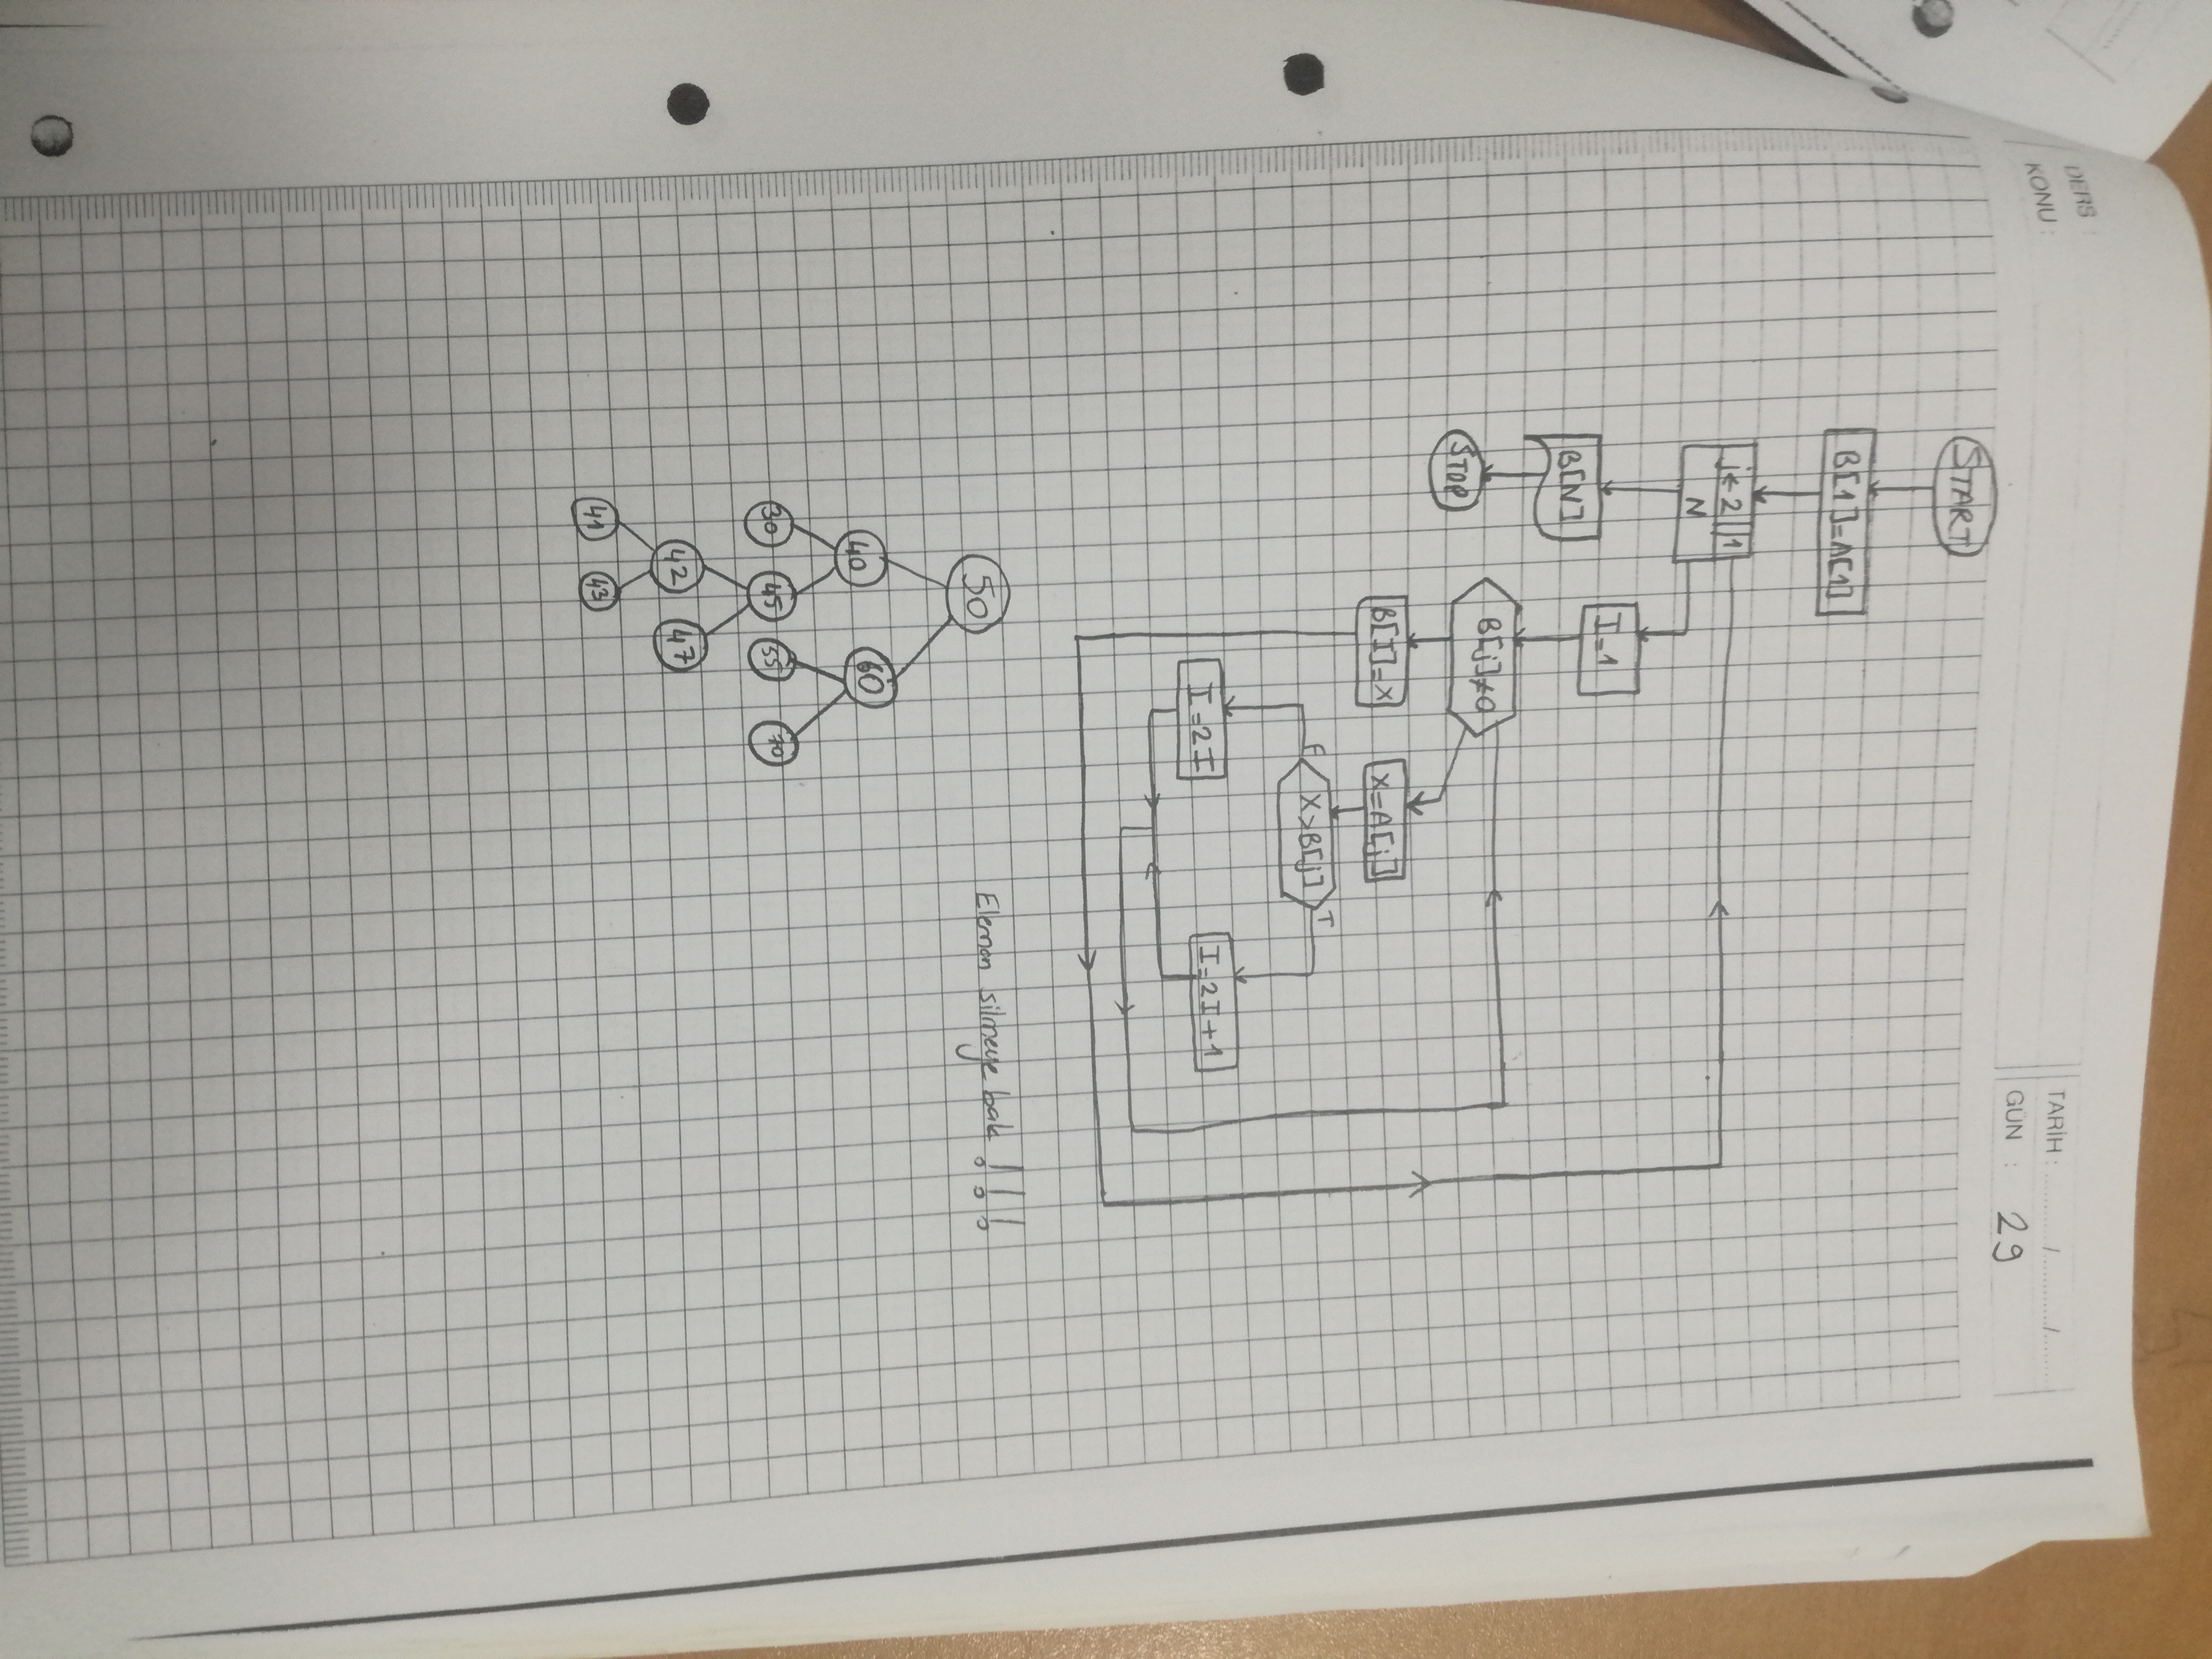 DERS :
KONU :
TARİH : ........../........../..........
GÜN : 29
START
B[1]=A[1]
j←2 || 1
N
I=1
B[N]
B[j]≠0
STOP
B[I]=X
X=A[j]
F X>B[j] T
I=2I
I=2I+1
50
Eleman silmeye bak !!!
40 60
30 45 55 70
42 47
41 43